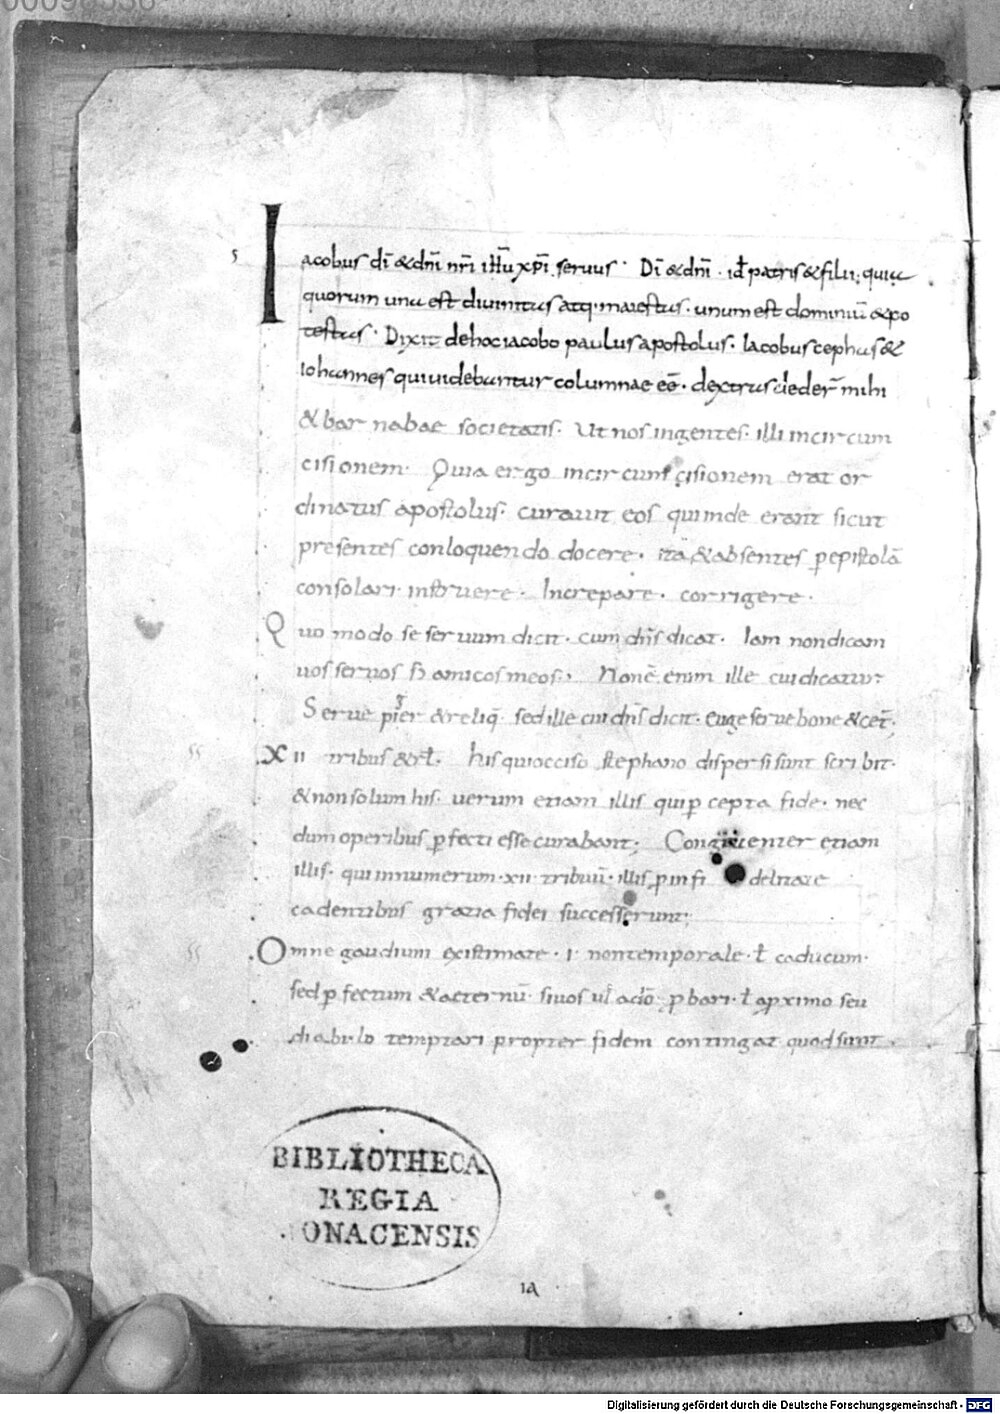 00098536
Iacobus dī & dn̄i nr̄i ihu xp̄i seruus. Dī & dn̄i. id patris & filii; quia
quorum una est diuinitas atq; maiestas. unum est dominiū & po
testas. Dixit de hoc iacobo paulus apostolus. Iacobus cephas &
iohannes qui uidebantur columnae eē. dextras deder̄ mihi
& barnabae societatis. Ut nos ingentes. illi incircum
cisionem. Quia ergo incircumcisionem erat or
dinatus apostolus. curauit eos qui inde erant sicut
presentes conloquendo docere. ita & absentes p epistolā
consolari. instruere. Increpare. corrigere.
Quomodo se seruum dicit. cum dn̄s dicat. Iam non dicam
uos seruos sʒ amicos meos; Non ē enim ille cui dicatur.
Serue piger & reliq̄. sed ille cui dn̄s dicit. Euge serue bone & cet̄.
XII tribus & rl. his qui occiso stephano dispersi sunt scribit.
& non solum his. uerum etiam illis qui p cepta fide. nec
dum operibus p fecti esse curabant; Congruenter etiam
illis. qui innumerum. xii. tribuū. illis p infi delitate
cadentibus gratia fidei successerunt;
Omne gaudium existimate. i. non temporale. ł caducum.
sed p fectum & aeternū. siuos ul adō; p bari. ł ap ximo seu
diabulo temptari propter fidem contingat quod sunt.
BIBLIOTHECA
REGIA
MONACENSIS
IA
Digitalisierung gefördert durch die Deutsche Forschungsgemeinschaft - DFG